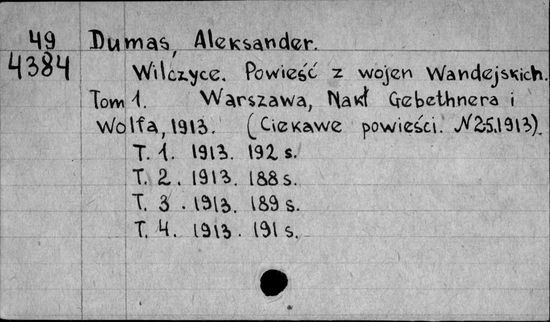 49 Dumas, Aleksander.
4384 Wilczyce. Powieść z wojen Wandejskich.
Tom 1. Warszawa, Nakł Gebethnera i
Wolfa, 1913. (Ciekawe powieści. N25.1913).
T. 1. 1913. 192 s.
T. 2. 1913. 188 s.
T. 3. 1913. 189 s.
T. 4. 1913. 191 s.